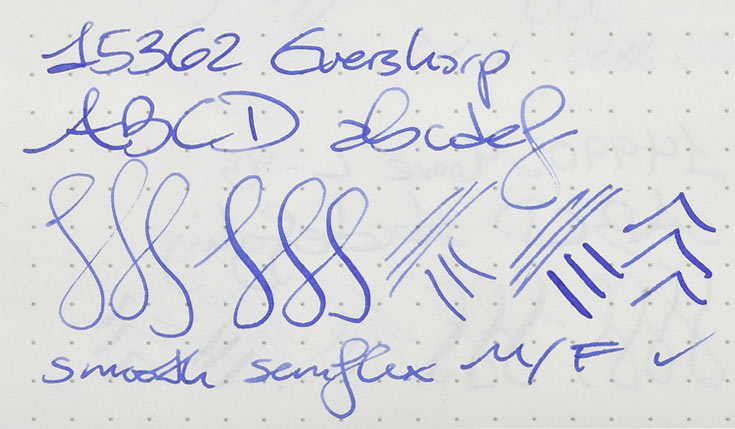 15362 Eversharp
ABCD abcdef
smooth semiflex M/F ✓